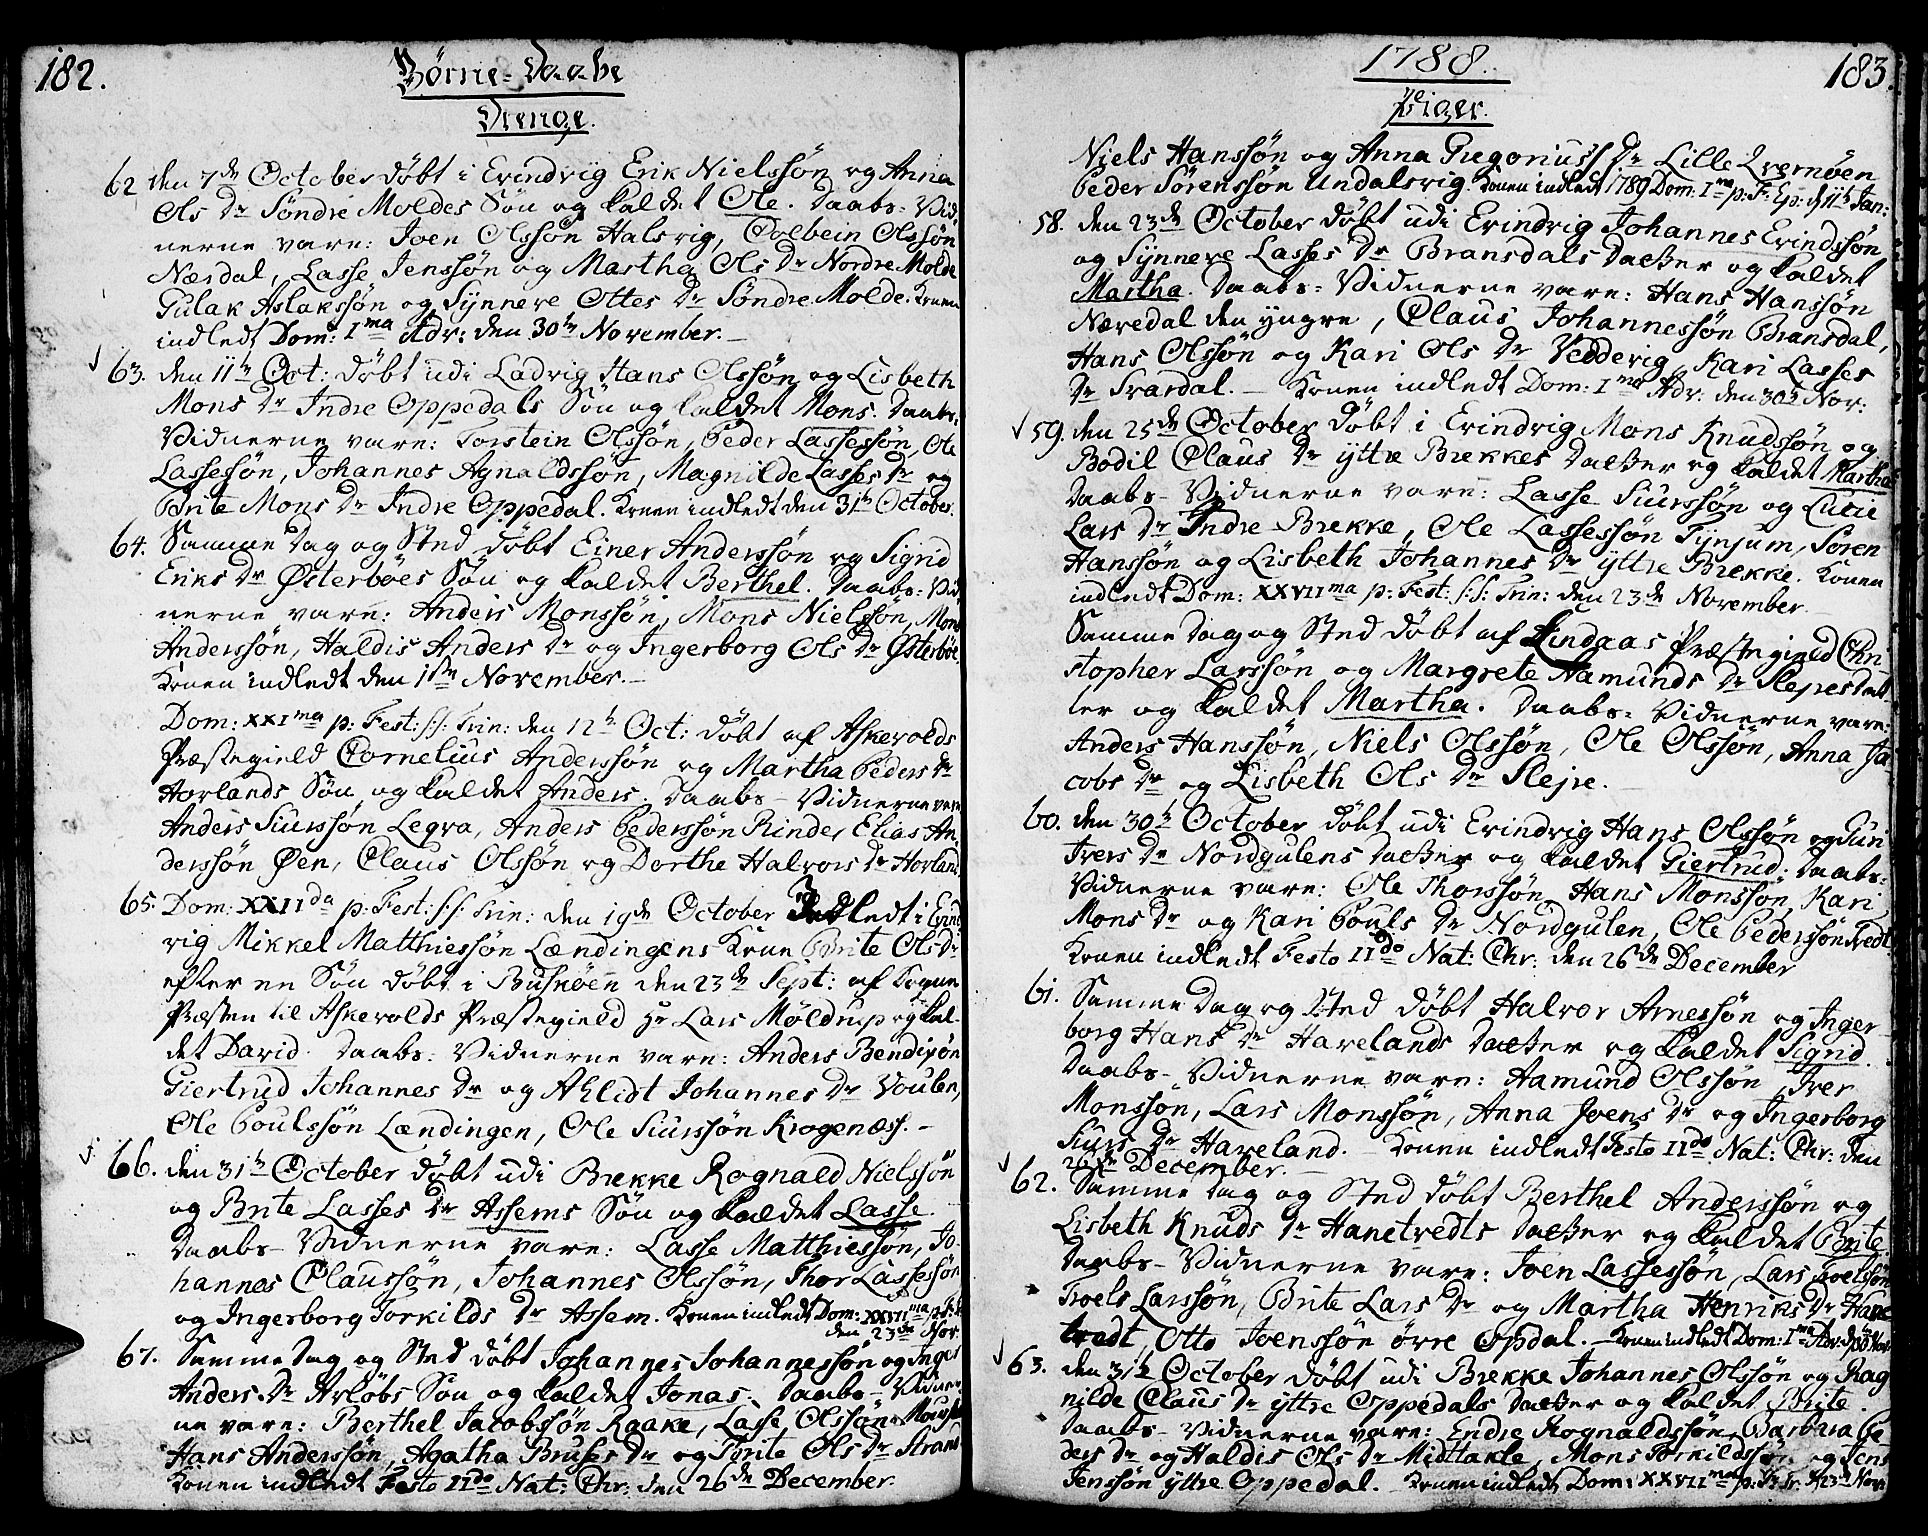 182.
Børne-Daabe
Drenge.
62 den 7de October døbt i Evindvig Erik Nielssøn og Anna
Ols Dr Søndre Moldes Søn og kaldet Ole. Daabs-Vid-
nerne vare: Joen Olssøn Halsvig, Colbein Olssøn
Nærdal, Lasse Jenssøn og Martha Ols Dr Nordre Molde
Gulak Aslakssøn og Synneve Ottes Dr Søndre Molde. Konen
indledt Dom: Ima Adv: den 30te November.
63. den 11te Oct: døbt udi Ladvig Hans Olssøn og Lisbeth
Mons Dr Indre Oppedals Søn og kaldet Mons. Daabs-
Vidnerne vare: Torstein Olssøn, Peder Lassesøn, Ole
Lassesøn, Johannes Agnaldssøn, Magnilde Lasses Dr og
Brite Mons Dr Indre Oppedal. Konen indledt den 31te October.
64. Samme Dag og Sted døbt Einer Anderssøn og Sigrid
Eriks Dr Østerbøes Søn og kaldet Berthel. Daabs-Vid
nerne vare: Anders Monssøn, Mons Nielssøn, Mons
Anderssøn, Haldis Anders Dr og Ingerborg Ols Dr Østerbøe.
Konen indledt den 1ste November.
Dom: XXIma p: Fest: S:S: Trin: den 12te Oct: døbt af Askevolds
Præstegield Cornelius Anderssøn og Martha Peders Dr
Horlands Søn og kaldet Anders. Daabs-Vidnerne vare
Anders Siurssøn Legra, Anders Pederssøn Rinde, Elias An-
derssøn Øen, Claus Olssøn og Dorthe Halvors Dr Horland
65. Dom: XXIIda p: Fest: S:S: Trin: den 19de October Indledt i Evind
vig Mikkel Matthiessøn Lændingens Kone Brite Ols Dr
efter en Søn døbt i Buskøen den 23de Sept: af Sogne
Præsten til Askevolds Præstegield Hr Lars Møldrup og kal-
det David. Daabs-Vidnerne vare: Anders Bendixøn
Giertrud Johannes Dr og Ahlidt Johannes Dr Voulen,
Ole Poulssøn Lændingen, Ole Siurssøn Krogenæss.
66. den 31te October døbt udi Brekke Rognald Nielssøn
og Brite Lasses Dr Assems Søn og kaldet Lasse.
Daabs-Vidnerne vare: Lasse Matthiessøn, Jo
hannes Claussøn, Johannes Olssøn, Thor Lassessøn
og Ingerborg Torkilds Dr Assem. Konen indledt Dom: XXVIIma p: F:
den 23de Nov.
67. Samme Dag og Sted døbt Johannes Johannessøn og Inger
Anders Dr Arløbs Søn og kaldet Jonas. Daabs-Vidner
ne vare: Berthel Jacobssøn Raake, Lasse Olssøn
Hans Anderssøn, Agatha Bruses Dr og Brite Ols Dr Strand
Konen indledt Festo IIdo Nat: Chr: den 26de December.
1788.
183.
Piger.
Niels Hanssøn og Anna Gregoriuss Dr Lille Qvernøen
Peder Sørenssøn Undalsvig. Konen indledt 1789 Dom: Ima p: F: Ep: d 11te Jan:
58. den 23de October døbt udi Evindvig Johannes Evindssøn
og Synneve Lasses Dr Bransdals Datter og kaldet
Martha. Daabs-Vidnerne vare: Hans Hanssøn
Næredal den yngre, Claus Johannessøn Bransdal,
Hans Olssøn og Kari Ols Dr Vedvig, Kari Lasses
Dr Svardal. Konen indledt Dom: Ima Adv: den 30te Nov:
59. den 25de October døbt i Evindvig Mons Knudssøn og
Bodil Claus Dr yttre Brekkes Datter og kaldet Martha
Daabs-Vidnerne vare: Lasse Siurssøn og Lucie
Lars Dr Indre Brekke, Ole Lassessøn Tynjum, Søren
Hanssøn og Lisbeth Johannes Dr yttre Brekke. Konen
indledt Dom: XXVIIma p: Fest: S:S: Trin: den 23de November.
Samme Dag og Sted døbt af Lindaas Præstegield Chri
stopher Larssøn og Margrete Aamunds Dr Slejres Dat
ter og kaldet Martha. Daabs-Vidnerne vare:
Anders Hanssøn, Niels Olssøn, Ole Olssøn, Anna Ja-
cobs Dr og Lisbeth Ols Dr Slejre.
60. den 30te October døbt udi Evindvig Hans Olssøn og Guri
Ivers Dr Nordgulens Datter og kaldet Giertrud. Daabs-
Vidnerne vare: Ole Thorssøn, Hans Monssøn, Kari
Mons Dr og Kari Pouls Dr Nordgulen, Ole Pederssøn Tvedt
Konen indledt Festo IIdo Nat: Chr: den 26de December
61. Samme Dag og Sted døbt Halvor Arnessøn og Inger-
borg Hans Dr Havelands Datter og kaldet Sigrid.
Daabs-Vidnerne vare: Aamund Olssøn, Iver
Monssøn, Lars Monssøn, Anna Joens Dr og Ingerborg
Siurs Dr Haveland. Konen indledt Festo IIdo Nat: Chr: den
26de December.
62. Samme Dag og Sted døbt Berthel Anderssøn og
Lisbeth Knuds Dr Hanetvedts Datter og kaldet Brite.
Daabs-Vidnerne vare: Joen Lassessøn, Lars Troelssøn
Troels Larssøn, Brite Lars Dr og Martha Henriks Dr Hane
tvedt, Otto Joenssøn øvre Opdal. Konen indledt Dom: Ima Adv: d 30 Nov
63. den 31te October døbt udi Brekke Johannes Olssøn og Rag
nilde Claus Dr yttre Oppedals Datter og kaldet Brite.
Daabs-Vidnerne vare: Endre Rognaldssøn, Barbara Pe
ders Dr og Haldis Ols Dr Midtakle, Mons Torkildssøn og Jens
Jenssøn yttre Oppedal. Konen indledt Dom: XXVIIma p: F: Tr: d 23de Nov: